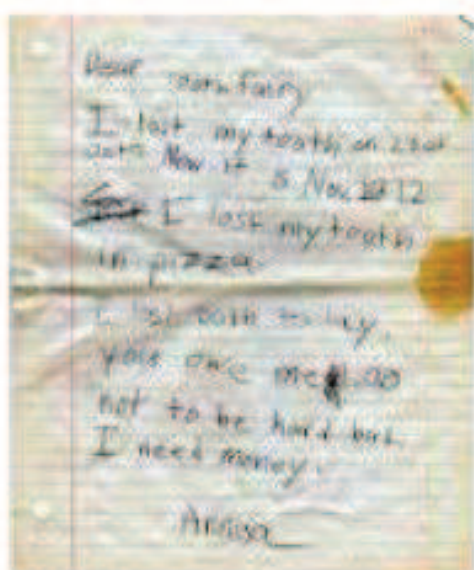 Dear tooth fairy
I lost my tooth on
Now it 8 Nov 12
I lost my tooth
in pizza.
today
you owe me .00
not to be hard but
I need money.